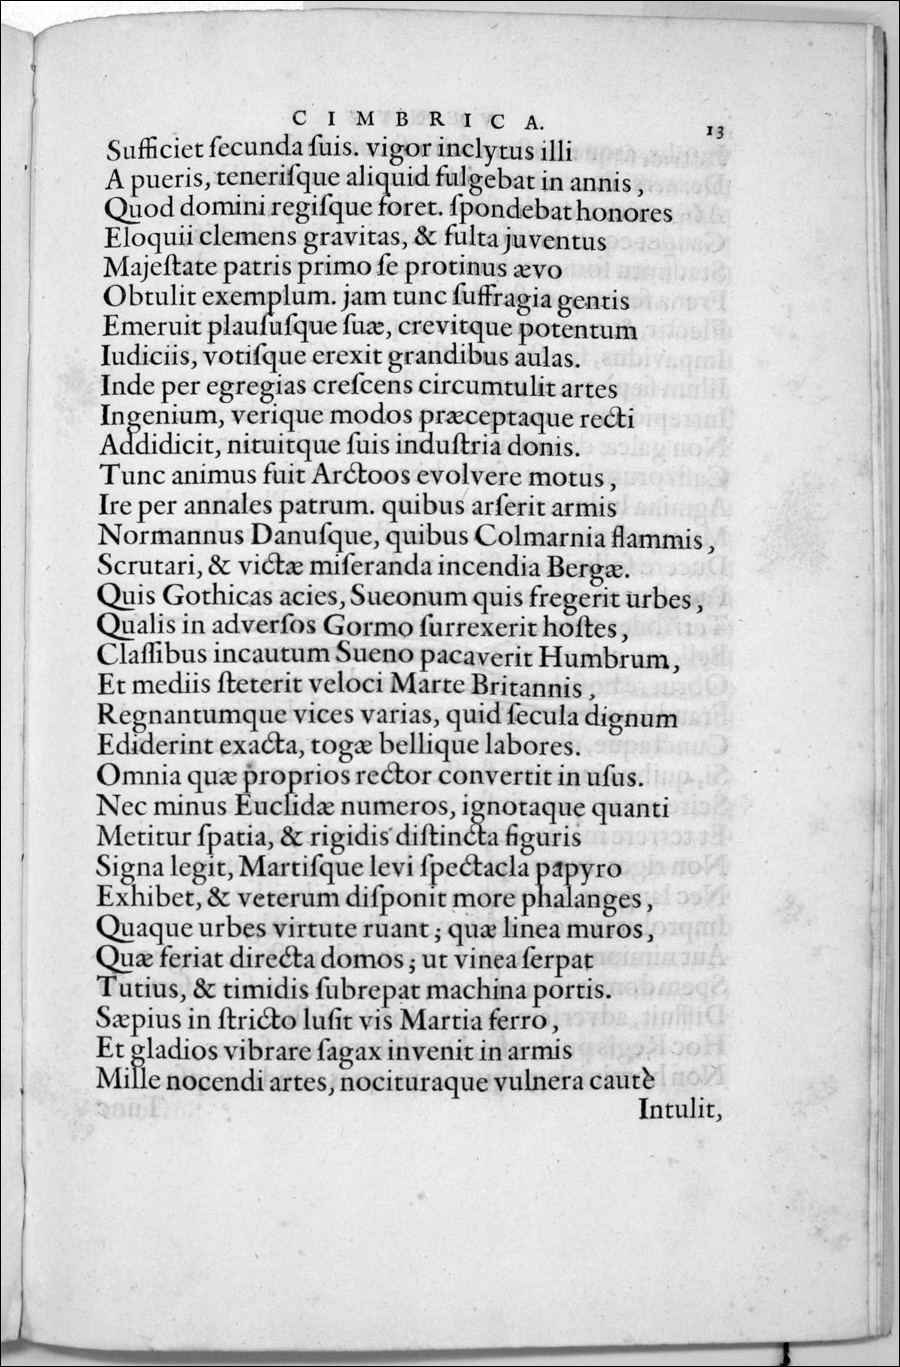 CIMBRICA. 13
Sufficiet ſecunda ſuis. vigor inclytus illi
A pueris, teneriſque aliquid fulgebat in annis,
Quod domini regiſque foret. ſpondebat honores
Eloquii clemens gravitas, & fulta juventus
Majeſtate patris primo ſe protinus ævo
Obtulit exemplum. jam tunc ſuffragia gentis
Emeruit plauſuſque ſuæ, crevitque potentum
Iudiciis, votiſque erexit grandibus aulas.
Inde per egregias creſcens circumtulit artes
Ingenium, verique modos præceptaque recti
Addidicit, nituitque ſuis induſtria donis.
Tunc animus fuit Arctoos evolvere motus,
Ire per annales patrum. quibus arſerit armis
Normannus Danuſque, quibus Colmarnia flammis,
Scrutari, & victæ miſeranda incendia Bergæ.
Quis Gothicas acies, Sueonum quis fregerit urbes,
Qualis in adverſos Gormo ſurrexerit hoſtes,
Claſſibus incautum Sueno pacaverit Humbrum,
Et mediis ſteterit veloci Marte Britannis,
Regnantumque vices varias, quid ſecula dignum
Ediderint exacta, togæ bellique labores.
Omnia quæ proprios rector convertit in uſus.
Nec minus Euclidæ numeros, ignotaque quanti
Metitur ſpatia, & rigidis diſtincta figuris
Signa legit, Martiſque levi ſpectacla papyro
Exhibet, & veterum diſponit more phalanges,
Quaque urbes virtute ruant; quæ linea muros,
Quæ feriat directa domos; ut vinea ſerpat
Tutius, & timidis ſubrepat machina portis.
Sæpius in ſtricto luſit vis Martia ferro,
Et gladios vibrare ſagax invenit in armis
Mille nocendi artes, nocituraque vulnera cautè
Intulit,